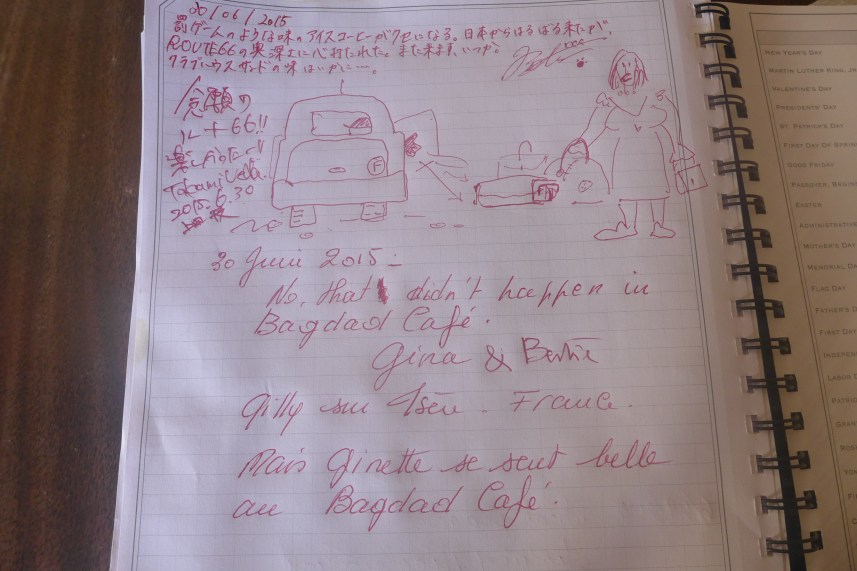 30/06/2015
罰ゲームのような味のアイスコーヒーがクセになる。日本からはるばる来たが、
ROUTE66の奥深さに心打たれた。また来ます、いつか。
クラブハウスサンドの味はいかに…。
念願の
ルート66!!
楽しかったー!!
2015.6.30
F
F
30 Juin 2015 -
No, that didn't happen in
Bagdad Café.
Gina & Bertie
Gilly sur Isère. France.
Mais Ginette se sent belle
au Bagdad Café.
NEW YEAR'S DAY
MARTIN LUTHER KING, JR
VALENTINE'S DAY
PRESIDENTS' DAY
ST. PATRICK'S DAY
FIRST DAY OF SPRING
GOOD FRIDAY
PASSOVER, BEGINS
EASTER
ADMINISTRATIVE
MOTHER'S DAY
MEMORIAL DAY
FLAG DAY
FATHER'S D
FIRST DAY
INDEPEN
LABOR D
PATRIO